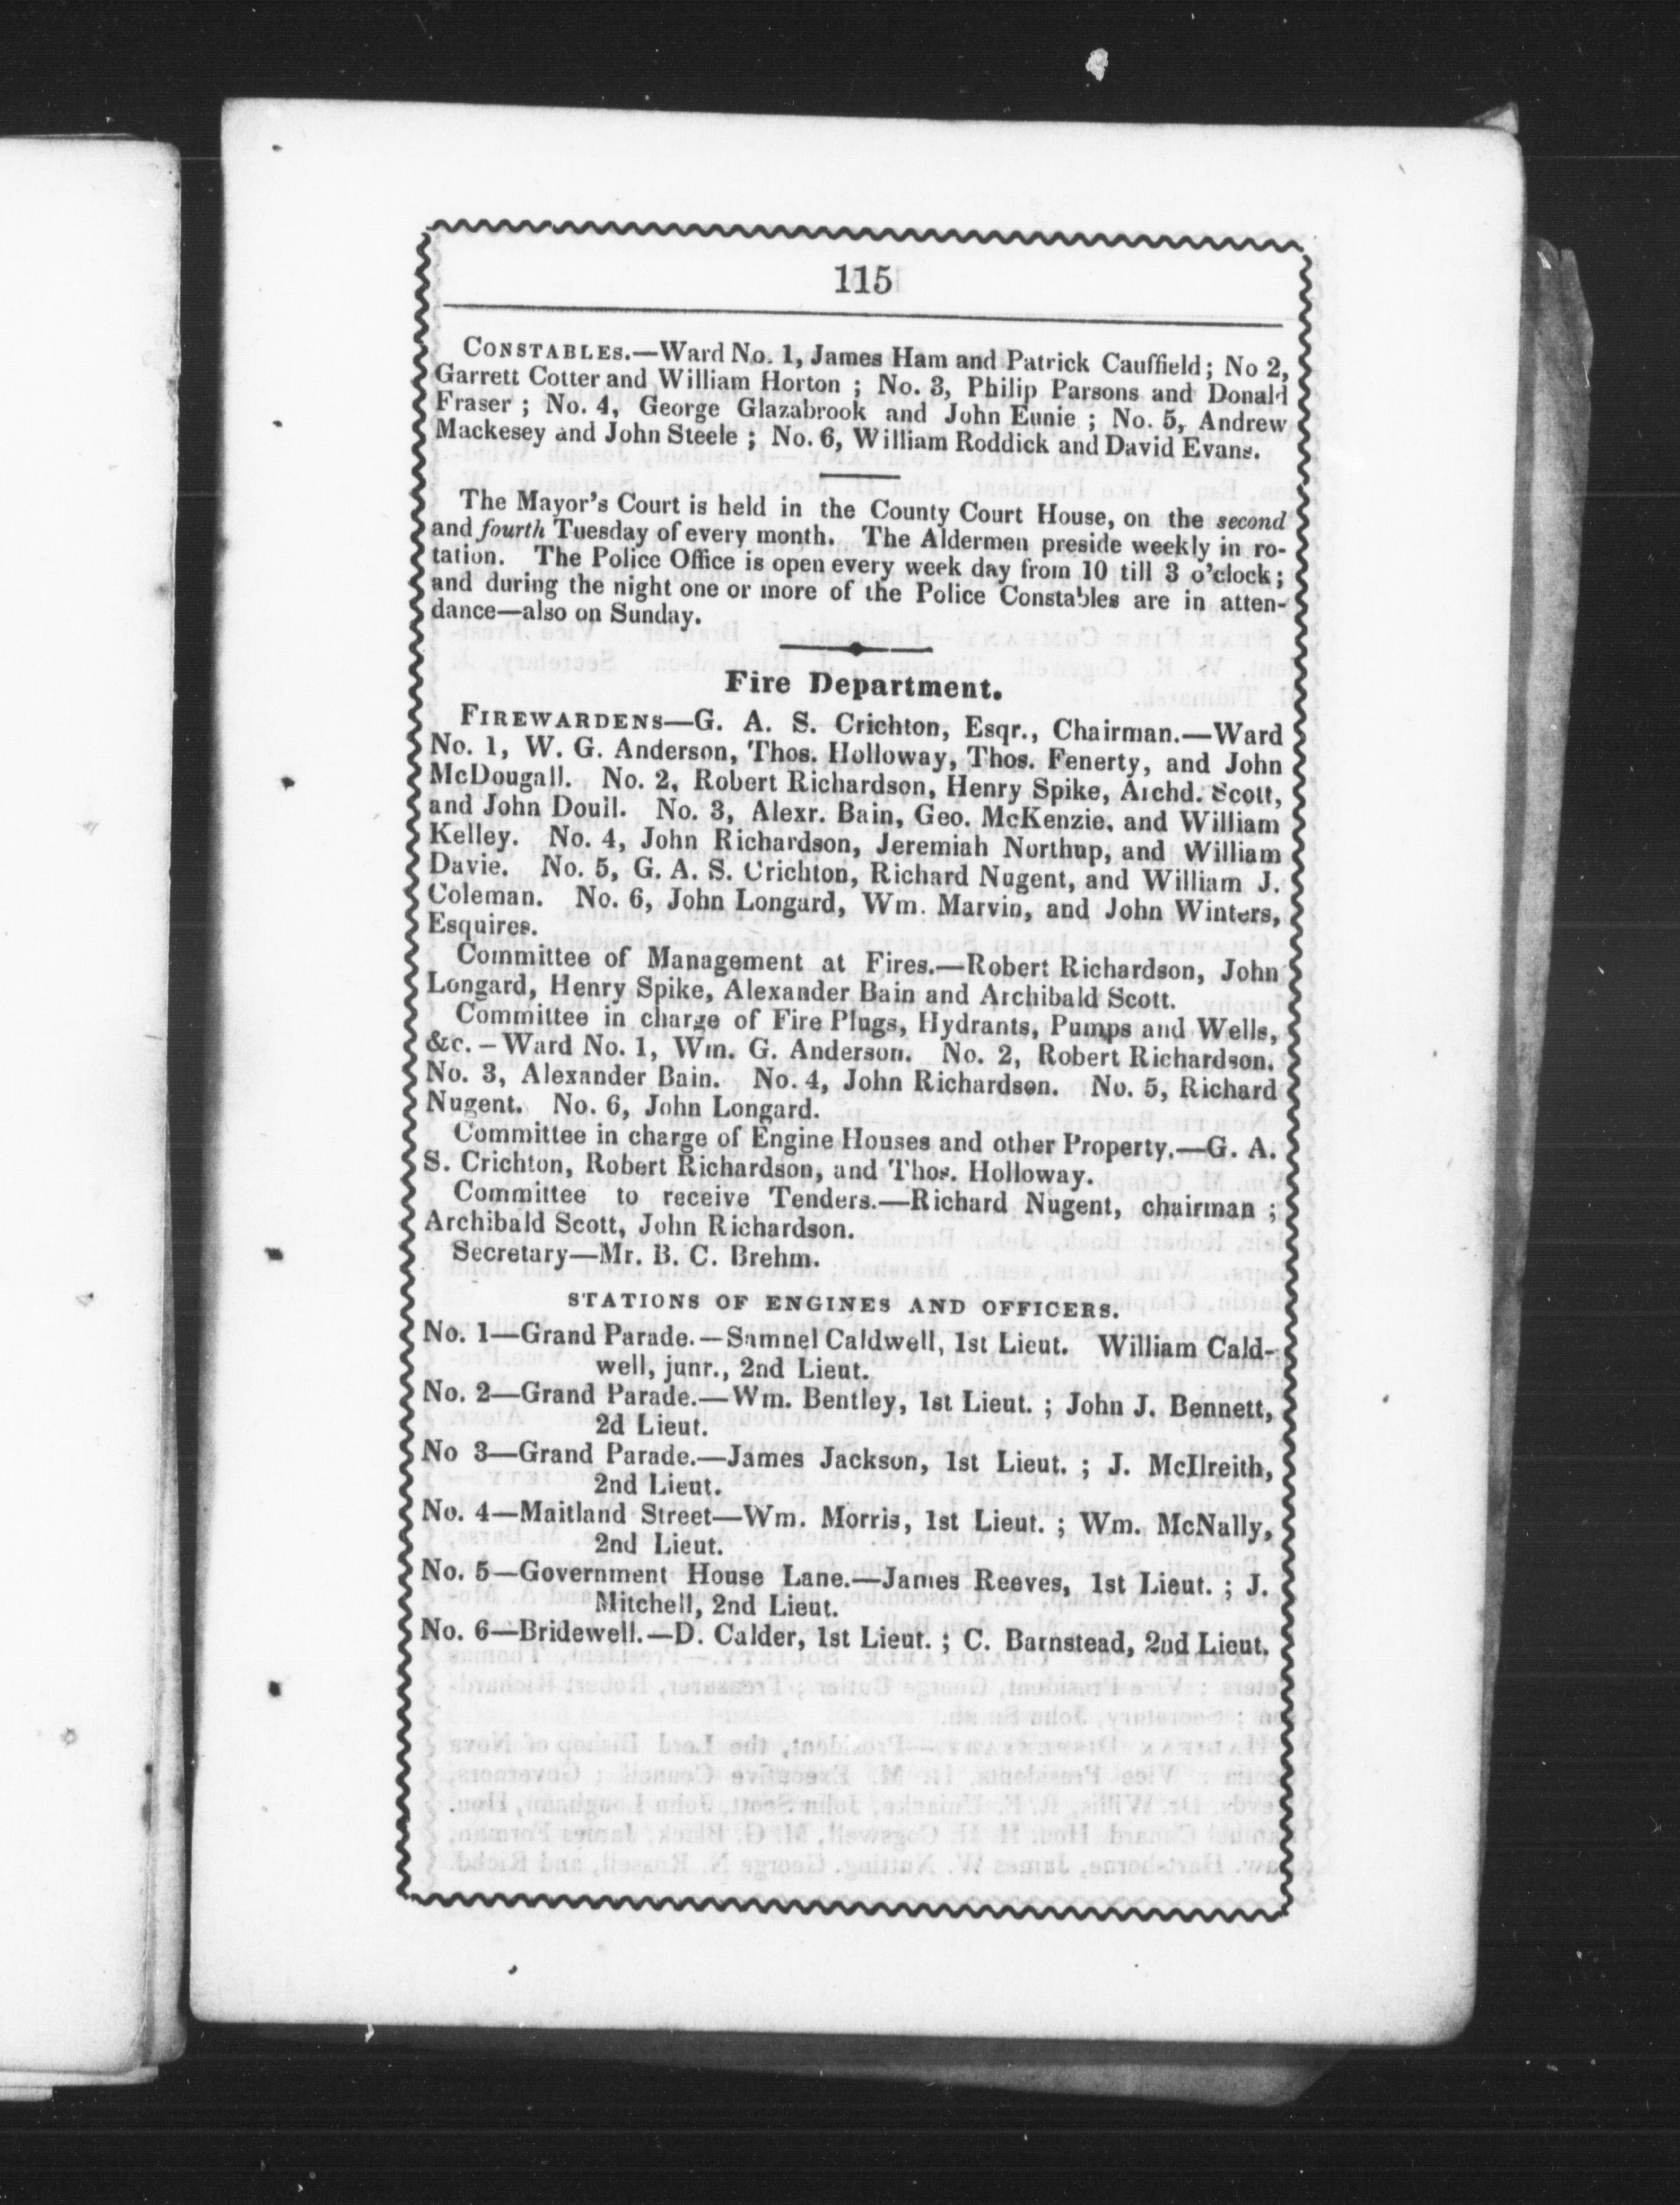 115
CONSTABLES.—Ward No. 1, James Ham and Patrick Cauffield; No 2,
Garrett Cotter and William Horton ; No. 3, Philip Parsons and Donald
Fraser ; No. 4, George Glazabrook and John Eunie ; No. 5, Andrew
Mackesey and John Steele ; No. 6, William Roddick and David Evans.
The Mayor's Court is held in the County Court House, on the second
and fourth Tuesday of every month. The Aldermen preside weekly in ro-
tation. The Police Office is open every week day from 10 till 3 o'clock;
and during the night one or more of the Police Constables are in atten-
dance—also on Sunday.
Fire Department.
FIREWARDENS—G. A. S. Crichton, Esqr., Chairman.—Ward
No. 1, W. G. Anderson, Thos. Holloway, Thos. Fenerty, and John
McDougall. No. 2, Robert Richardson, Henry Spike, Archd. Scott,
and John Douil. No. 3, Alexr. Bain, Geo. McKenzie, and William
Kelley. No. 4, John Richardson, Jeremiah Northup, and William
Davie. No. 5, G. A. S. Crichton, Richard Nugent, and William J.
Coleman. No. 6, John Longard, Wm. Marvin, and John Winters,
Esquires.
Committee of Management at Fires.—Robert Richardson, John
Longard, Henry Spike, Alexander Bain and Archibald Scott.
Committee in charge of Fire Plugs, Hydrants, Pumps and Wells,
&c.—Ward No. 1, Wm. G. Anderson. No. 2, Robert Richardson.
No. 3, Alexander Bain. No. 4, John Richardson. No. 5, Richard
Nugent. No. 6, John Longard.
Committee in charge of Engine Houses and other Property.—G. A.
S. Crichton, Robert Richardson, and Thos. Holloway.
Committee to receive Tenders.—Richard Nugent, chairman ;
Archibald Scott, John Richardson.
Secretary—Mr. B. C. Brehm.
STATIONS OF ENGINES AND OFFICERS.
No. 1—Grand Parade.—Samnel Caldwell, 1st Lieut. William Cald-
well, junr., 2nd Lieut.
No. 2—Grand Parade.—Wm. Bentley, 1st Lieut. ; John J. Bennett,
2d Lieut.
No 3—Grand Parade.—James Jackson, 1st Lieut. ; J. McIlreith,
2nd Lieut.
No. 4—Maitland Street—Wm. Morris, 1st Lieut. ; Wm. McNally,
2nd Lieut.
No. 5—Government House Lane.—James Reeves, 1st Lieut. ; J.
Mitchell, 2nd Lieut.
No. 6—Bridewell.—D. Calder, 1st Lieut. ; C. Barnstead, 2nd Lieut.